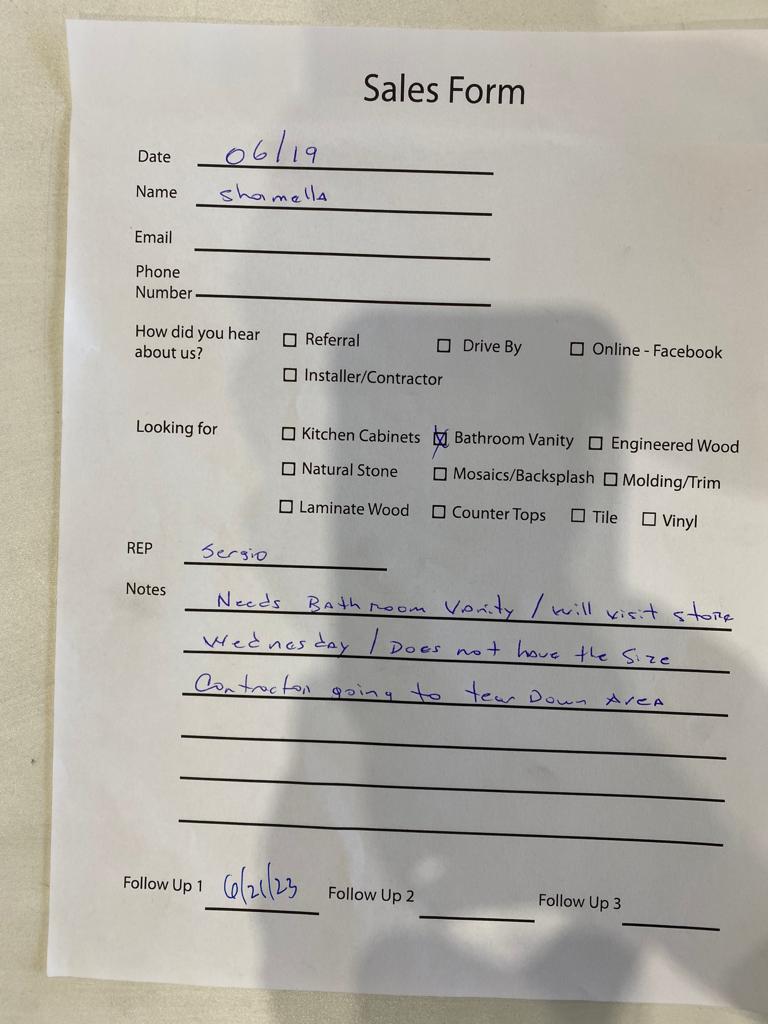 Sales Form
Date 06/19
Name Shamella
Email
Phone
Number
How did you hear ☐ Referral ☐ Drive By ☐ Online - Facebook
about us?
☐ Installer/Contractor
Looking for ☐ Kitchen Cabinets ☒ Bathroom Vanity ☐ Engineered Wood
☐ Natural Stone ☐ Mosaics/Backsplash ☐ Molding/Trim
☐ Laminate Wood ☐ Counter Tops ☐ Tile ☐ Vinyl
REP Sergio
Notes Needs Bathroom Vanity / will visit store
Wednesday / Does not have the Size
Contractor going to tear Down Area
Follow Up 1 6/21/23 Follow Up 2 Follow Up 3